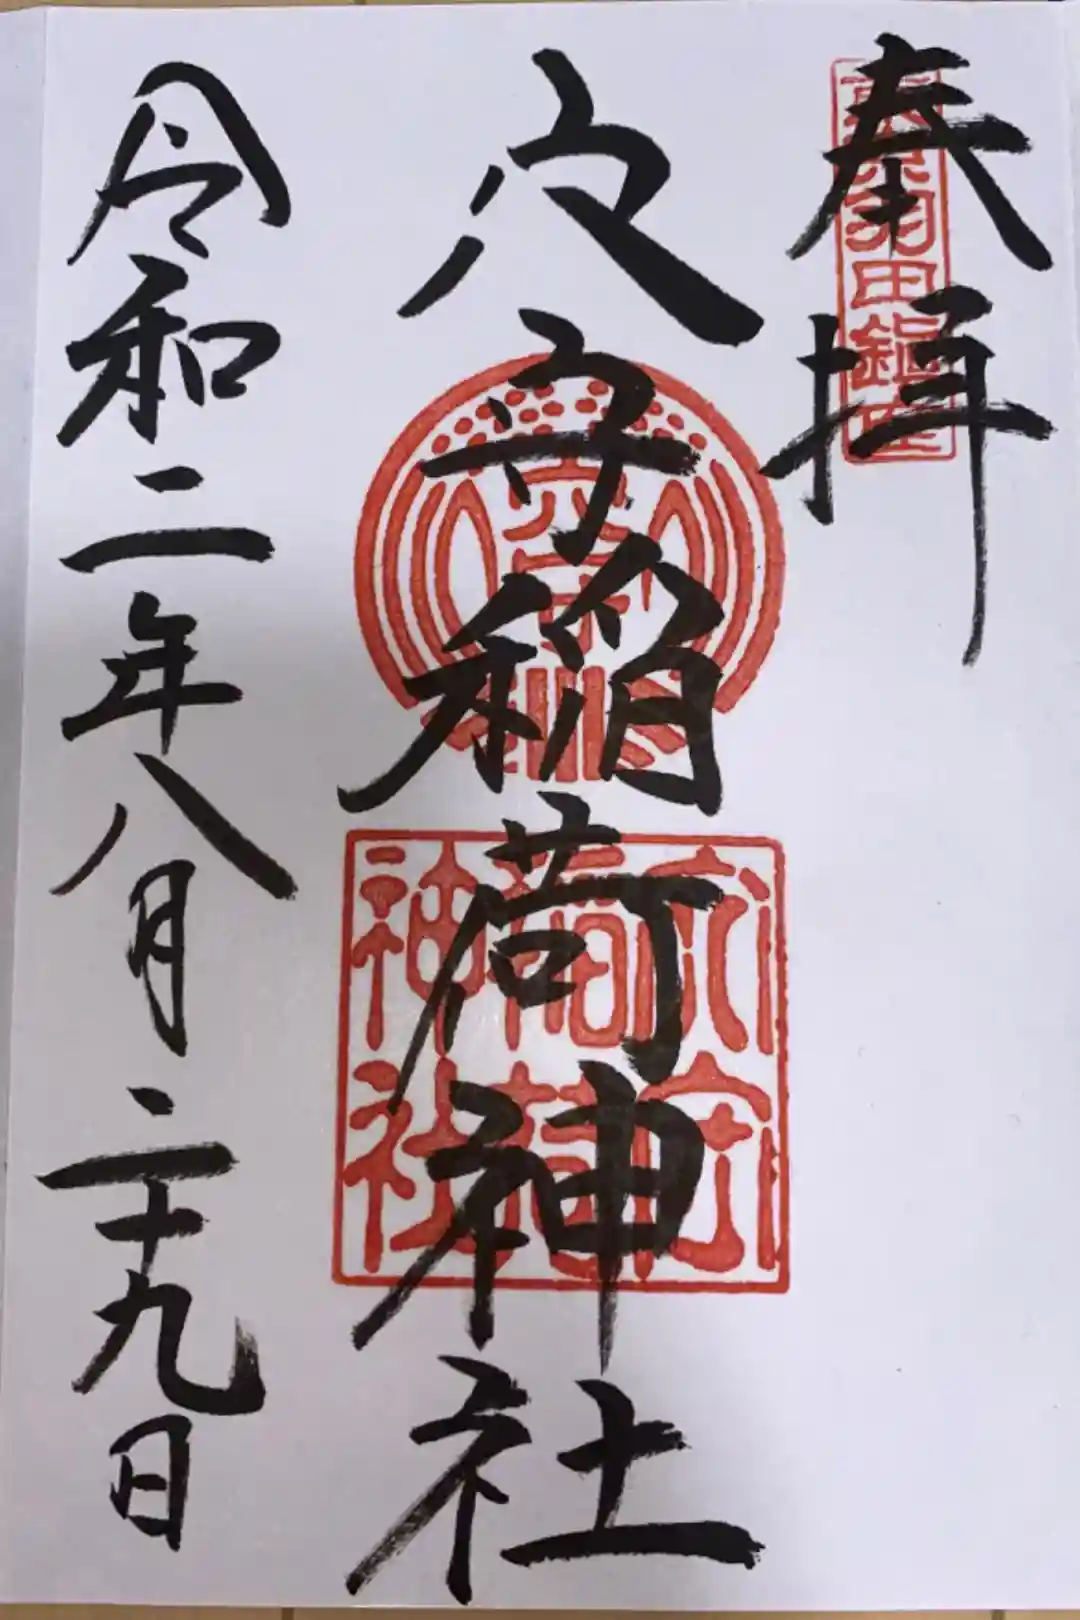 奉拝
東京羽田鎮座
穴守稲荷神社
穴守
穴守
稲荷
神社
令和二年八月二十九日